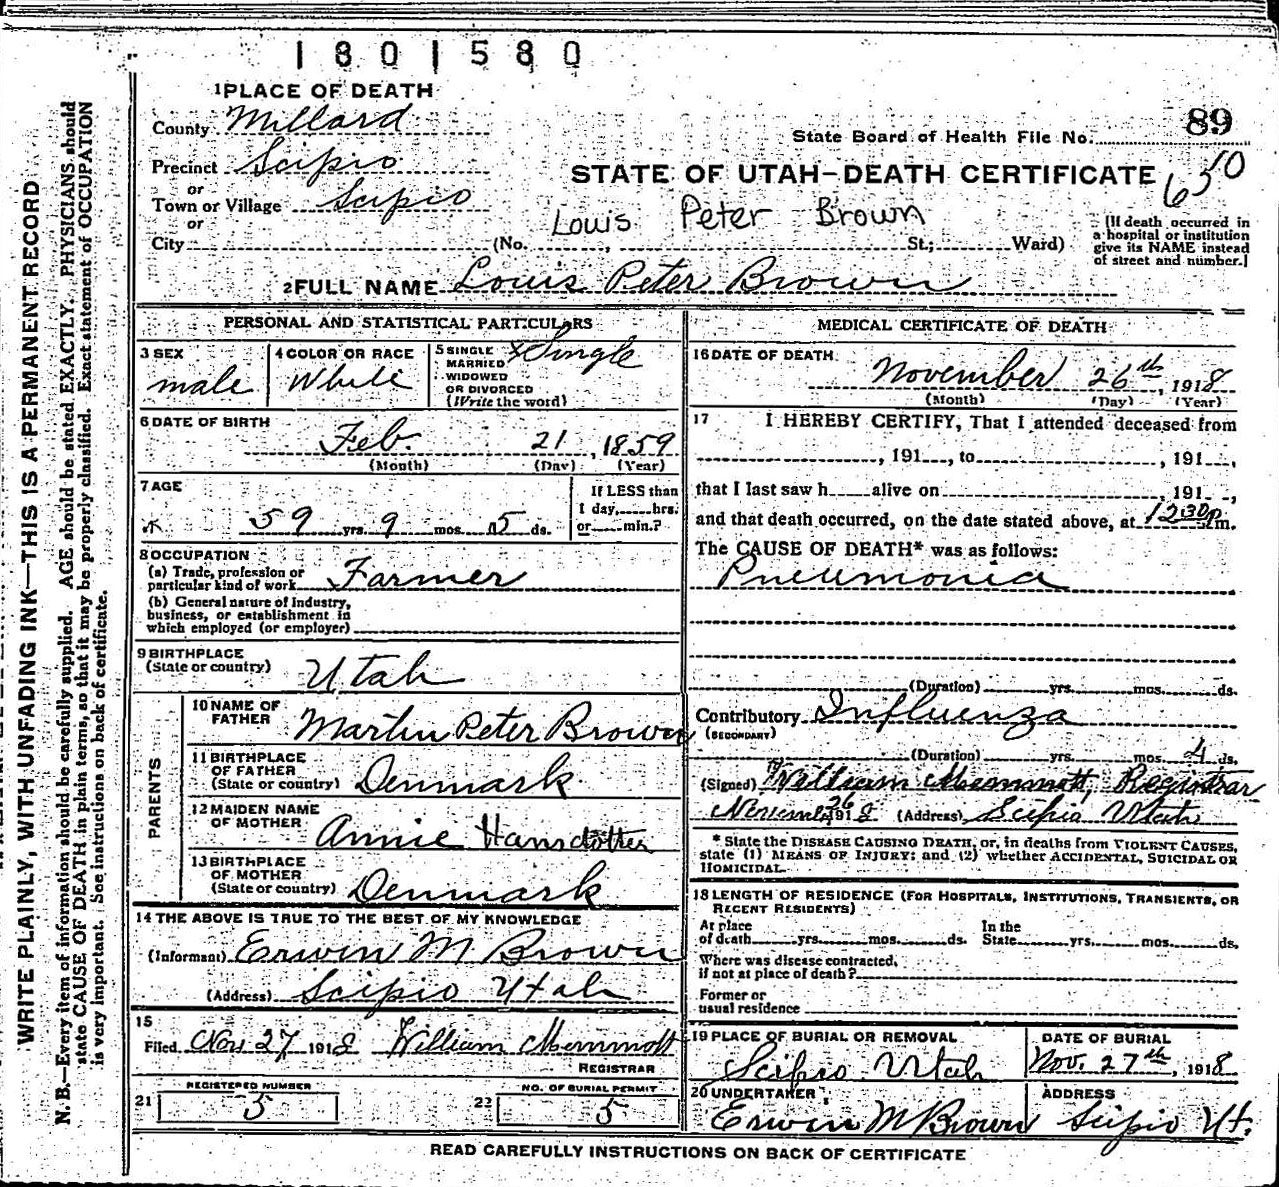 1801580
1 PLACE OF DEATH
County Millard
State Board of Health File No. 89
Precinct Scipio
STATE OF UTAH—DEATH CERTIFICATE
or
Town or Village Scipio
or
Louis Peter Brown
City (No. , St.; Ward)
[If death occurred in
a hospital or institution
give its NAME instead
of street and number.]
2 FULL NAME Louis Peter Brown
PERSONAL AND STATISTICAL PARTICULARS
3 SEX
male
4 COLOR OR RACE
White
5 SINGLE
MARRIED
WIDOWED
OR DIVORCED
(Write the word)
Single
6 DATE OF BIRTH
Feb. 21, 1859
(Month) (Day) (Year)
7 AGE
59 yrs. 9 mos. 5 ds.
If LESS than
1 day, hrs.
or min.?
8 OCCUPATION
(a) Trade, profession or
particular kind of work Farmer
(b) General nature of industry,
business, or establishment in
which employed (or employer)
9 BIRTHPLACE
(State or country) Utah
PARENTS
10 NAME OF
FATHER Martin Peter Brown
11 BIRTHPLACE
OF FATHER
(State or country) Denmark
12 MAIDEN NAME
OF MOTHER Annie Hansdotter
13 BIRTHPLACE
OF MOTHER
(State or country) Denmark
14 THE ABOVE IS TRUE TO THE BEST OF MY KNOWLEDGE
(Informant) Erwin M Brown
(Address) Scipio Utah
15
Filed Nov 27 1918 William Memmott
REGISTRAR
REGISTERED NUMBER
21 5
NO. OF BURIAL PERMIT
22 5
MEDICAL CERTIFICATE OF DEATH
16 DATE OF DEATH
November 26th, 1918
(Month) (Day) (Year)
17 I HEREBY CERTIFY, That I attended deceased from
, 191 , to , 191 ,
that I last saw h alive on , 191 ,
and that death occurred, on the date stated above, at 12:30 p m.
The CAUSE OF DEATH* was as follows:
Pneumonia
(Duration) yrs. mos. ds.
Contributory Influenza
(SECONDARY)
(Duration) yrs. mos. 4 ds.
(Signed) William Memmott, Registrar
26 1918 (Address) Scipio Utah
* State the DISEASE CAUSING DEATH, or, in deaths from VIOLENT CAUSES,
state (1) MEANS OF INJURY; and (2) whether ACCIDENTAL, SUICIDAL OR
HOMICIDAL.
18 LENGTH OF RESIDENCE (FOR HOSPITALS, INSTITUTIONS, TRANSIENTS, OR
RECENT RESIDENTS)
At place
of death yrs. mos. ds.
In the
State yrs. mos. ds.
Where was disease contracted,
if not at place of death?
Former or
usual residence
19 PLACE OF BURIAL OR REMOVAL
Scipio Utah
DATE OF BURIAL
Nov. 27th, 1918
20 UNDERTAKER
Erwin M Brown
ADDRESS
Scipio Ut.
READ CAREFULLY INSTRUCTIONS ON BACK OF CERTIFICATE
WRITE PLAINLY, WITH UNFADING INK—THIS IS A PERMANENT RECORD
N. B.—Every item of information should be carefully supplied. AGE should be stated EXACTLY. PHYSICIANS should
state CAUSE OF DEATH in plain terms, so that it may be properly classified. Exact statement of OCCUPATION
is very important. See instructions on back of certificate.